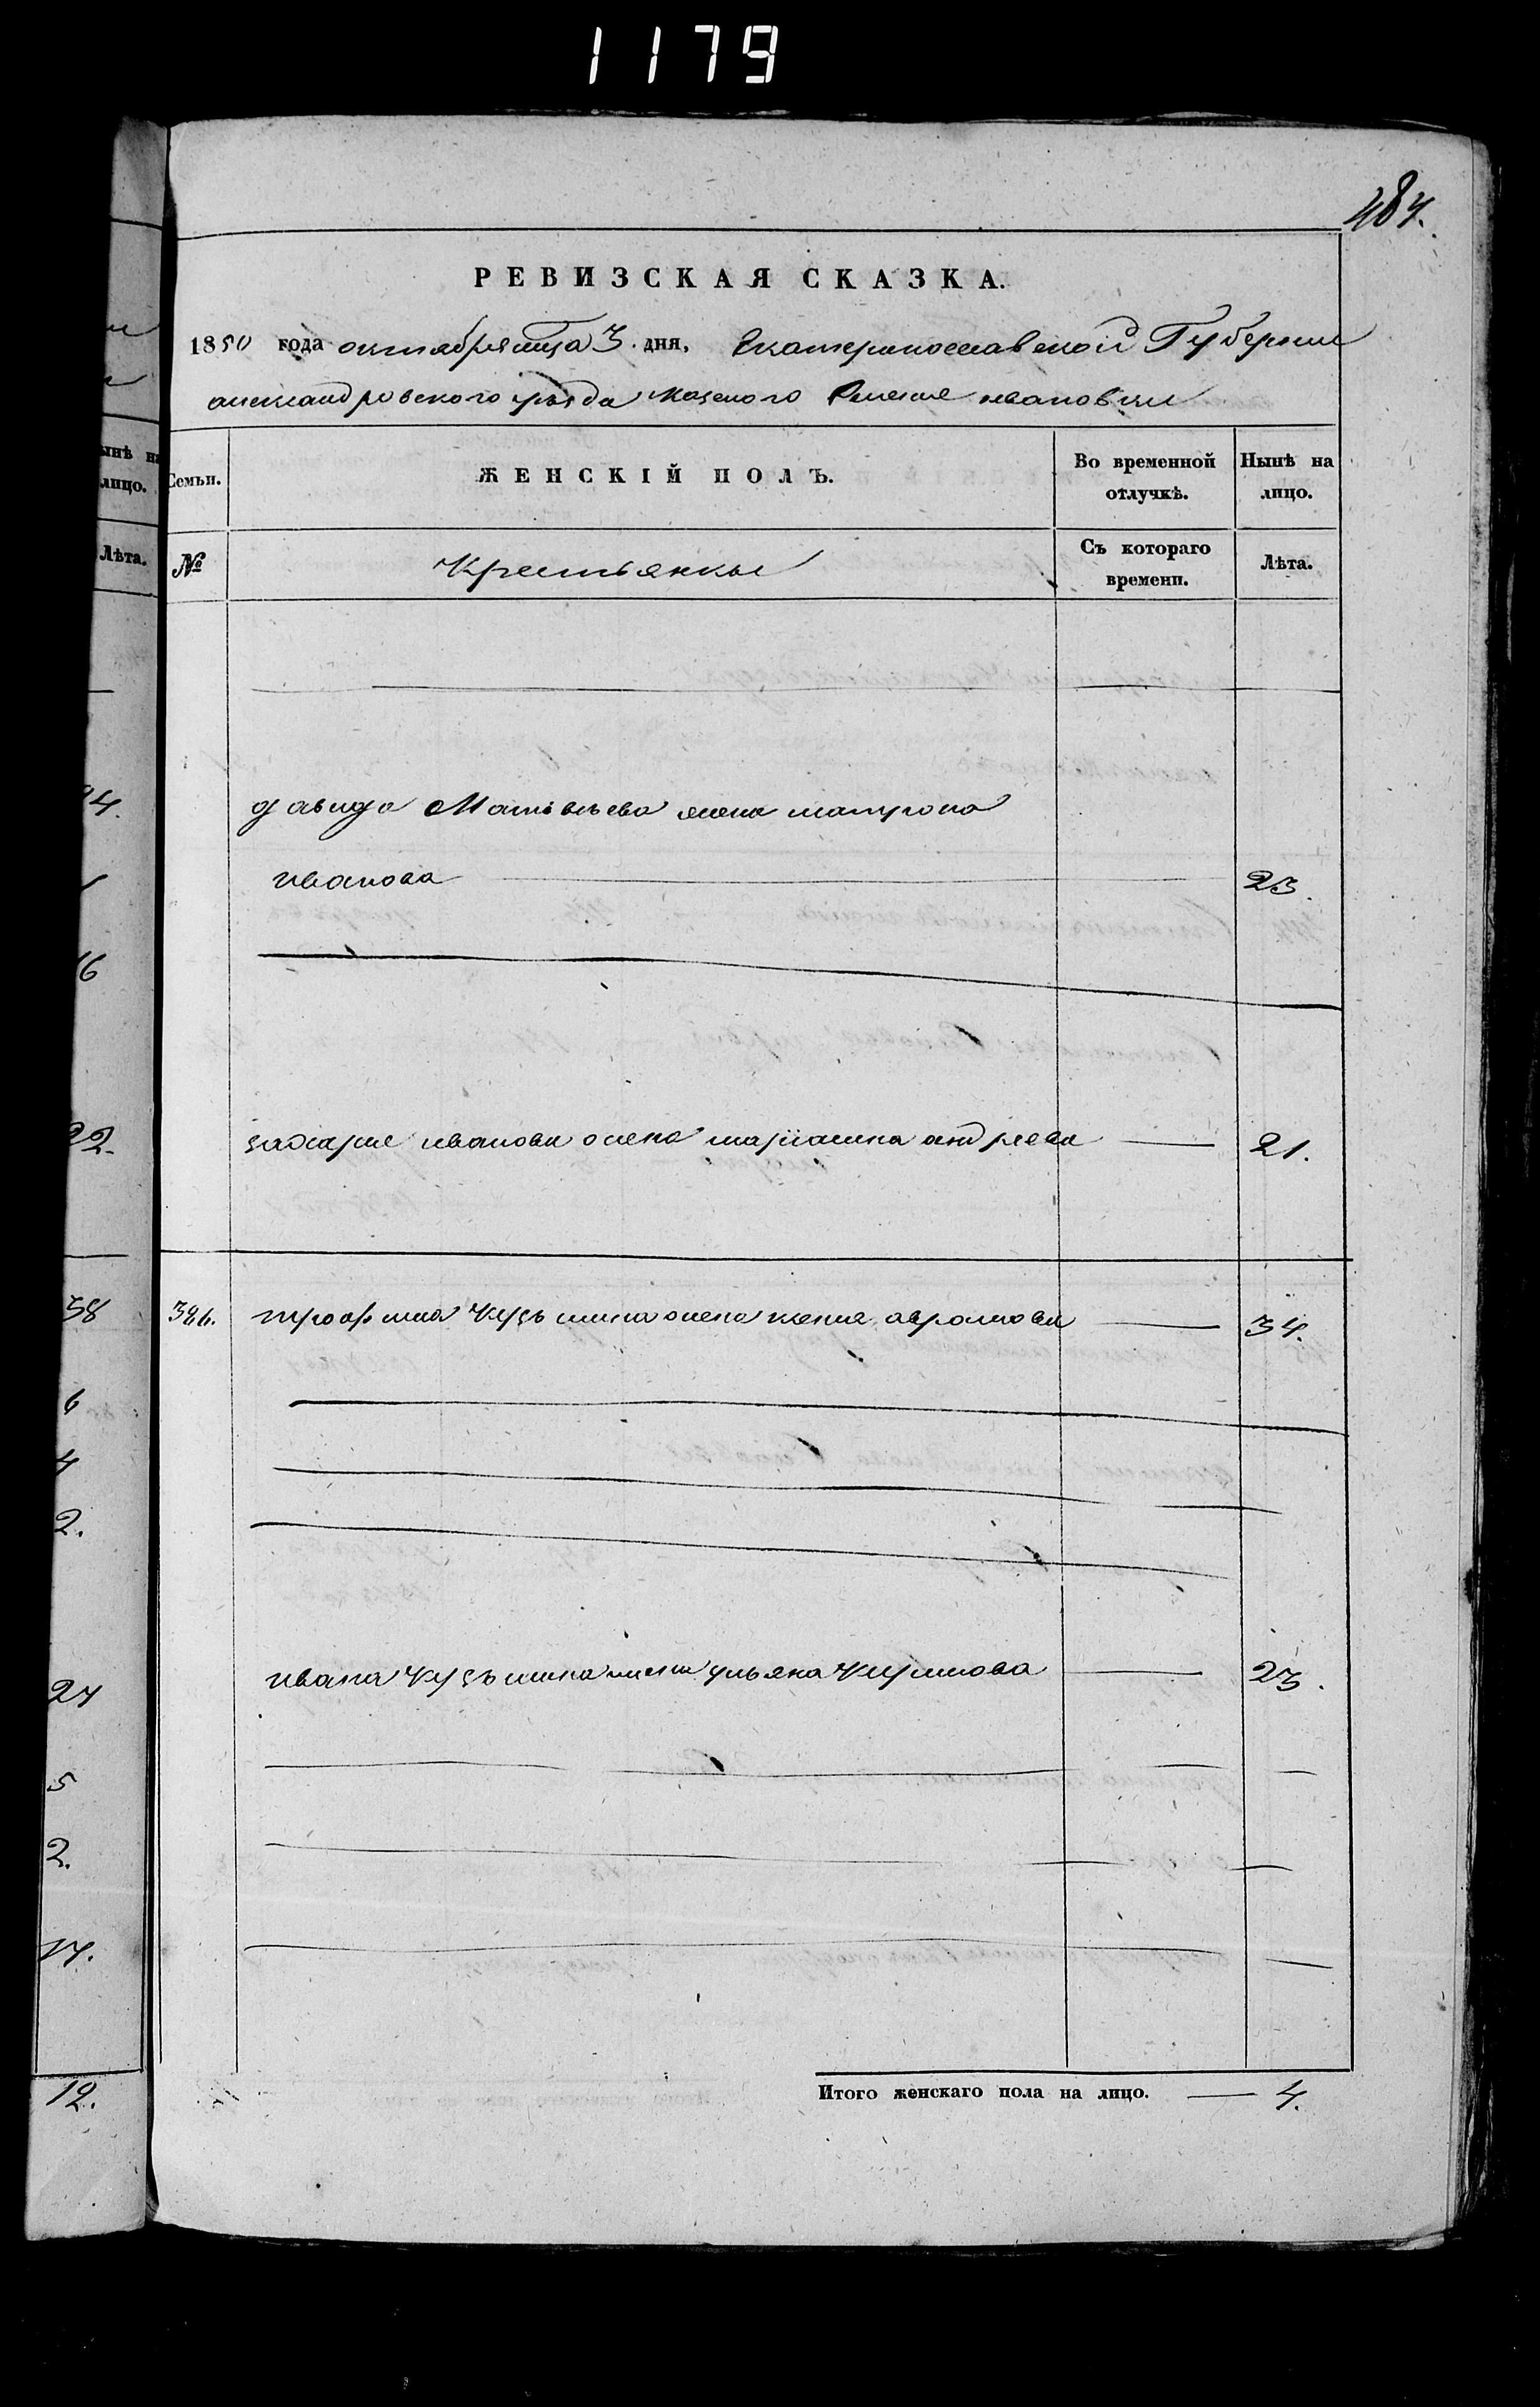 1179
484.
РЕВИЗСКАЯ СКАЗКА.
1850 года октября мца 3. дня, Екатеринославской Губернии
александровского уезда казеного Ивановки
Семьи.
ЖЕНСКІЙ ПОЛЪ.
Во временной отлучкѣ.
Нынѣ на лицо.
№
Крестьянки
Съ котораго времени.
Лѣта.
давида Матвѣева жена матрона
иванова 23.
захарие иванова жена мариамна андреева 21.
326. трофима кузьмина жена ксения аврамова 34.
ивана кузьмина жена ульяна 23.
Итого женскаго пола на лицо. 4.
ынѣ на
лицо.
Лѣта.
4.
16
22.
38
6
4
2.
27
5
2.
17.
12.